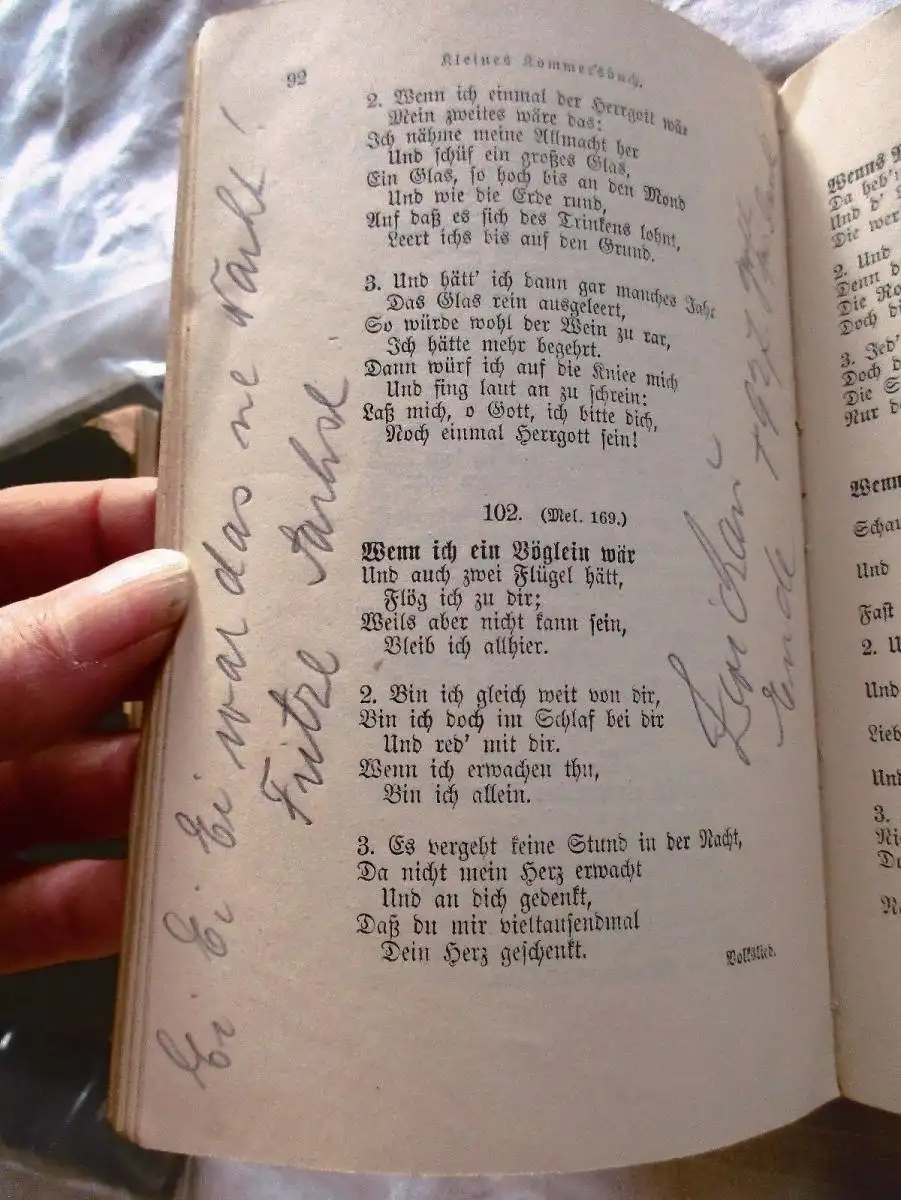 92
Kleines Kommersbuch.
2. Wenn ich einmal der Herrgott wär
Mein zweites wäre das:
Ich nähme meine Allmacht her
Und schüf ein großes Glas,
Ein Glas, so hoch bis an den Mond
Und wie die Erde rund,
Auf daß es sich des Trinkens lohnt,
Leert ichs bis auf den Grund.
3. Und hätt' ich dann gar manches Jahr
Das Glas rein ausgeleert,
So würde wohl der Wein zu rar,
Ich hätte mehr begehrt.
Dann würf ich auf die Kniee mich
Und fing laut an zu schrein:
Laß mich, o Gott, ich bitte dich,
Noch einmal Herrgott sein!
102. (Mel. 169.)
Wenn ich ein Vöglein wär
Und auch zwei Flügel hätt,
Flög ich zu dir;
Weils aber nicht kann sein,
Bleib ich allhier.
2. Bin ich gleich weit von dir,
Bin ich doch im Schlaf bei dir
Und red' mit dir.
Wenn ich erwachen thu,
Bin ich allein.
3. Es vergeht keine Stund in der Nacht,
Da nicht mein Herz erwacht
Und an dich gedenkt,
Daß du mir vieltausendmal
Dein Herz geschenkt.
Volkslied.
Ei Ei Ei war das ne Nacht!
Fritze
Ende
Wenns
Da heb'
Und d'
Die
2. Und
Denn
Die
Doch
3. Jed'
Doch
Die
Nur
Wenn
Und
Fast
2.
Und
Und
3.